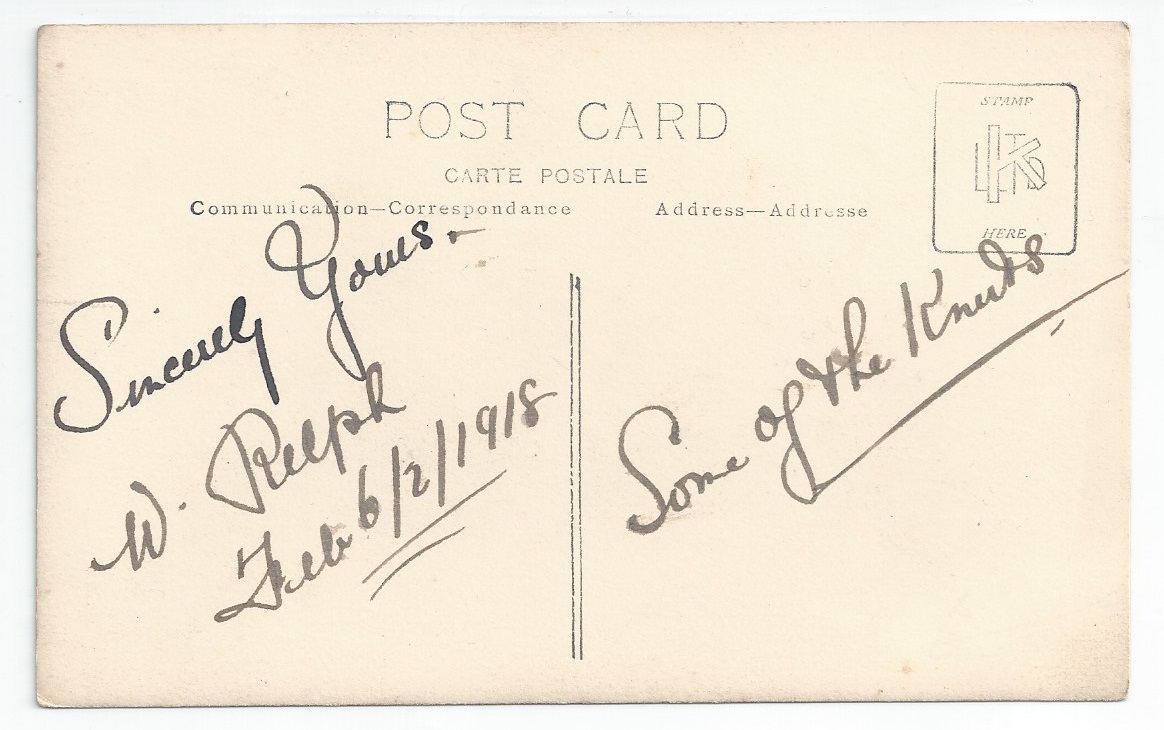 POST CARD
CARTE POSTALE
Communication—Correspondance
Address—Addresse
STAMP
HERE
Sincerely Yours.
W. Relph
Feb 6/2/1918
Some of the Knuts